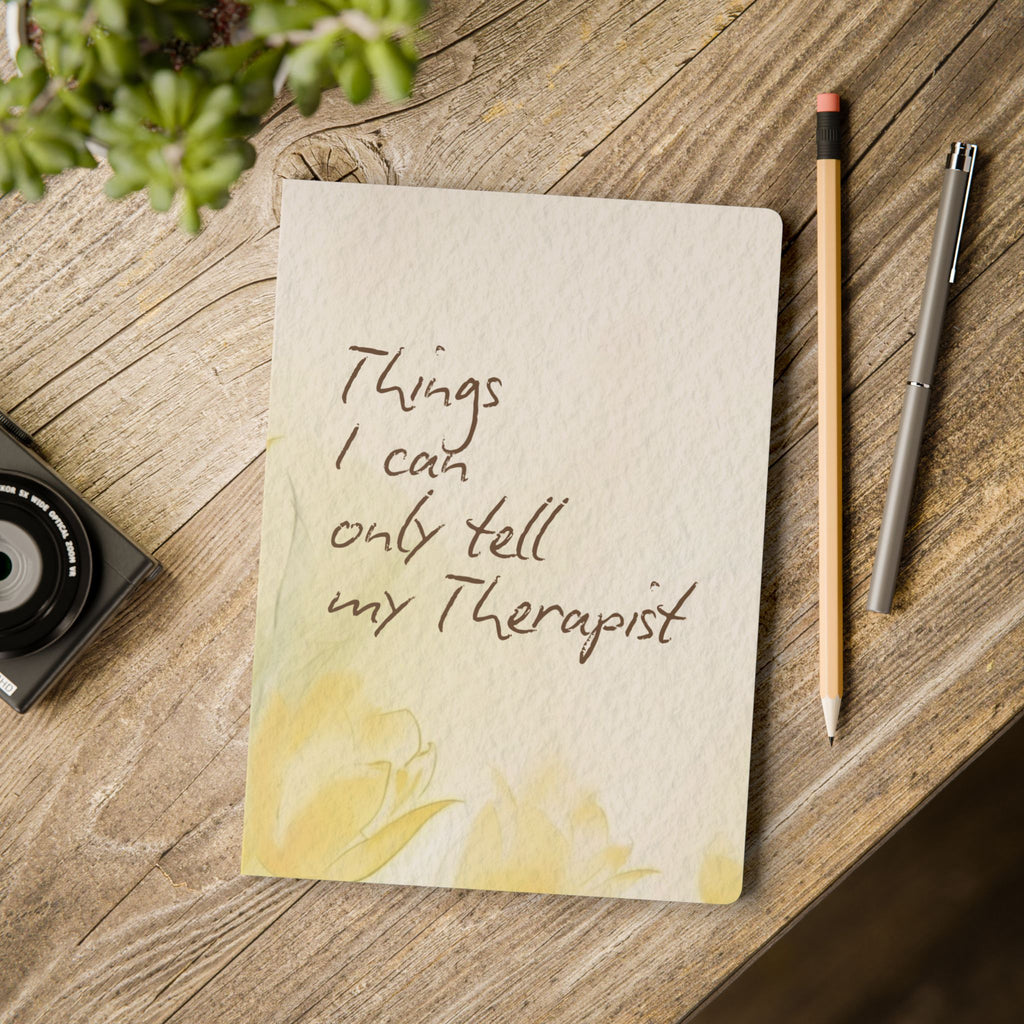 Things
I can
only tell
my Therapist
KOR 5X WIDE OPTICAL ZOOM VR